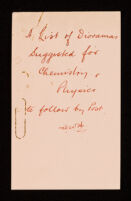 A List of Dioramas
Suggested for
Chemistry &
Physics
to follow by Post